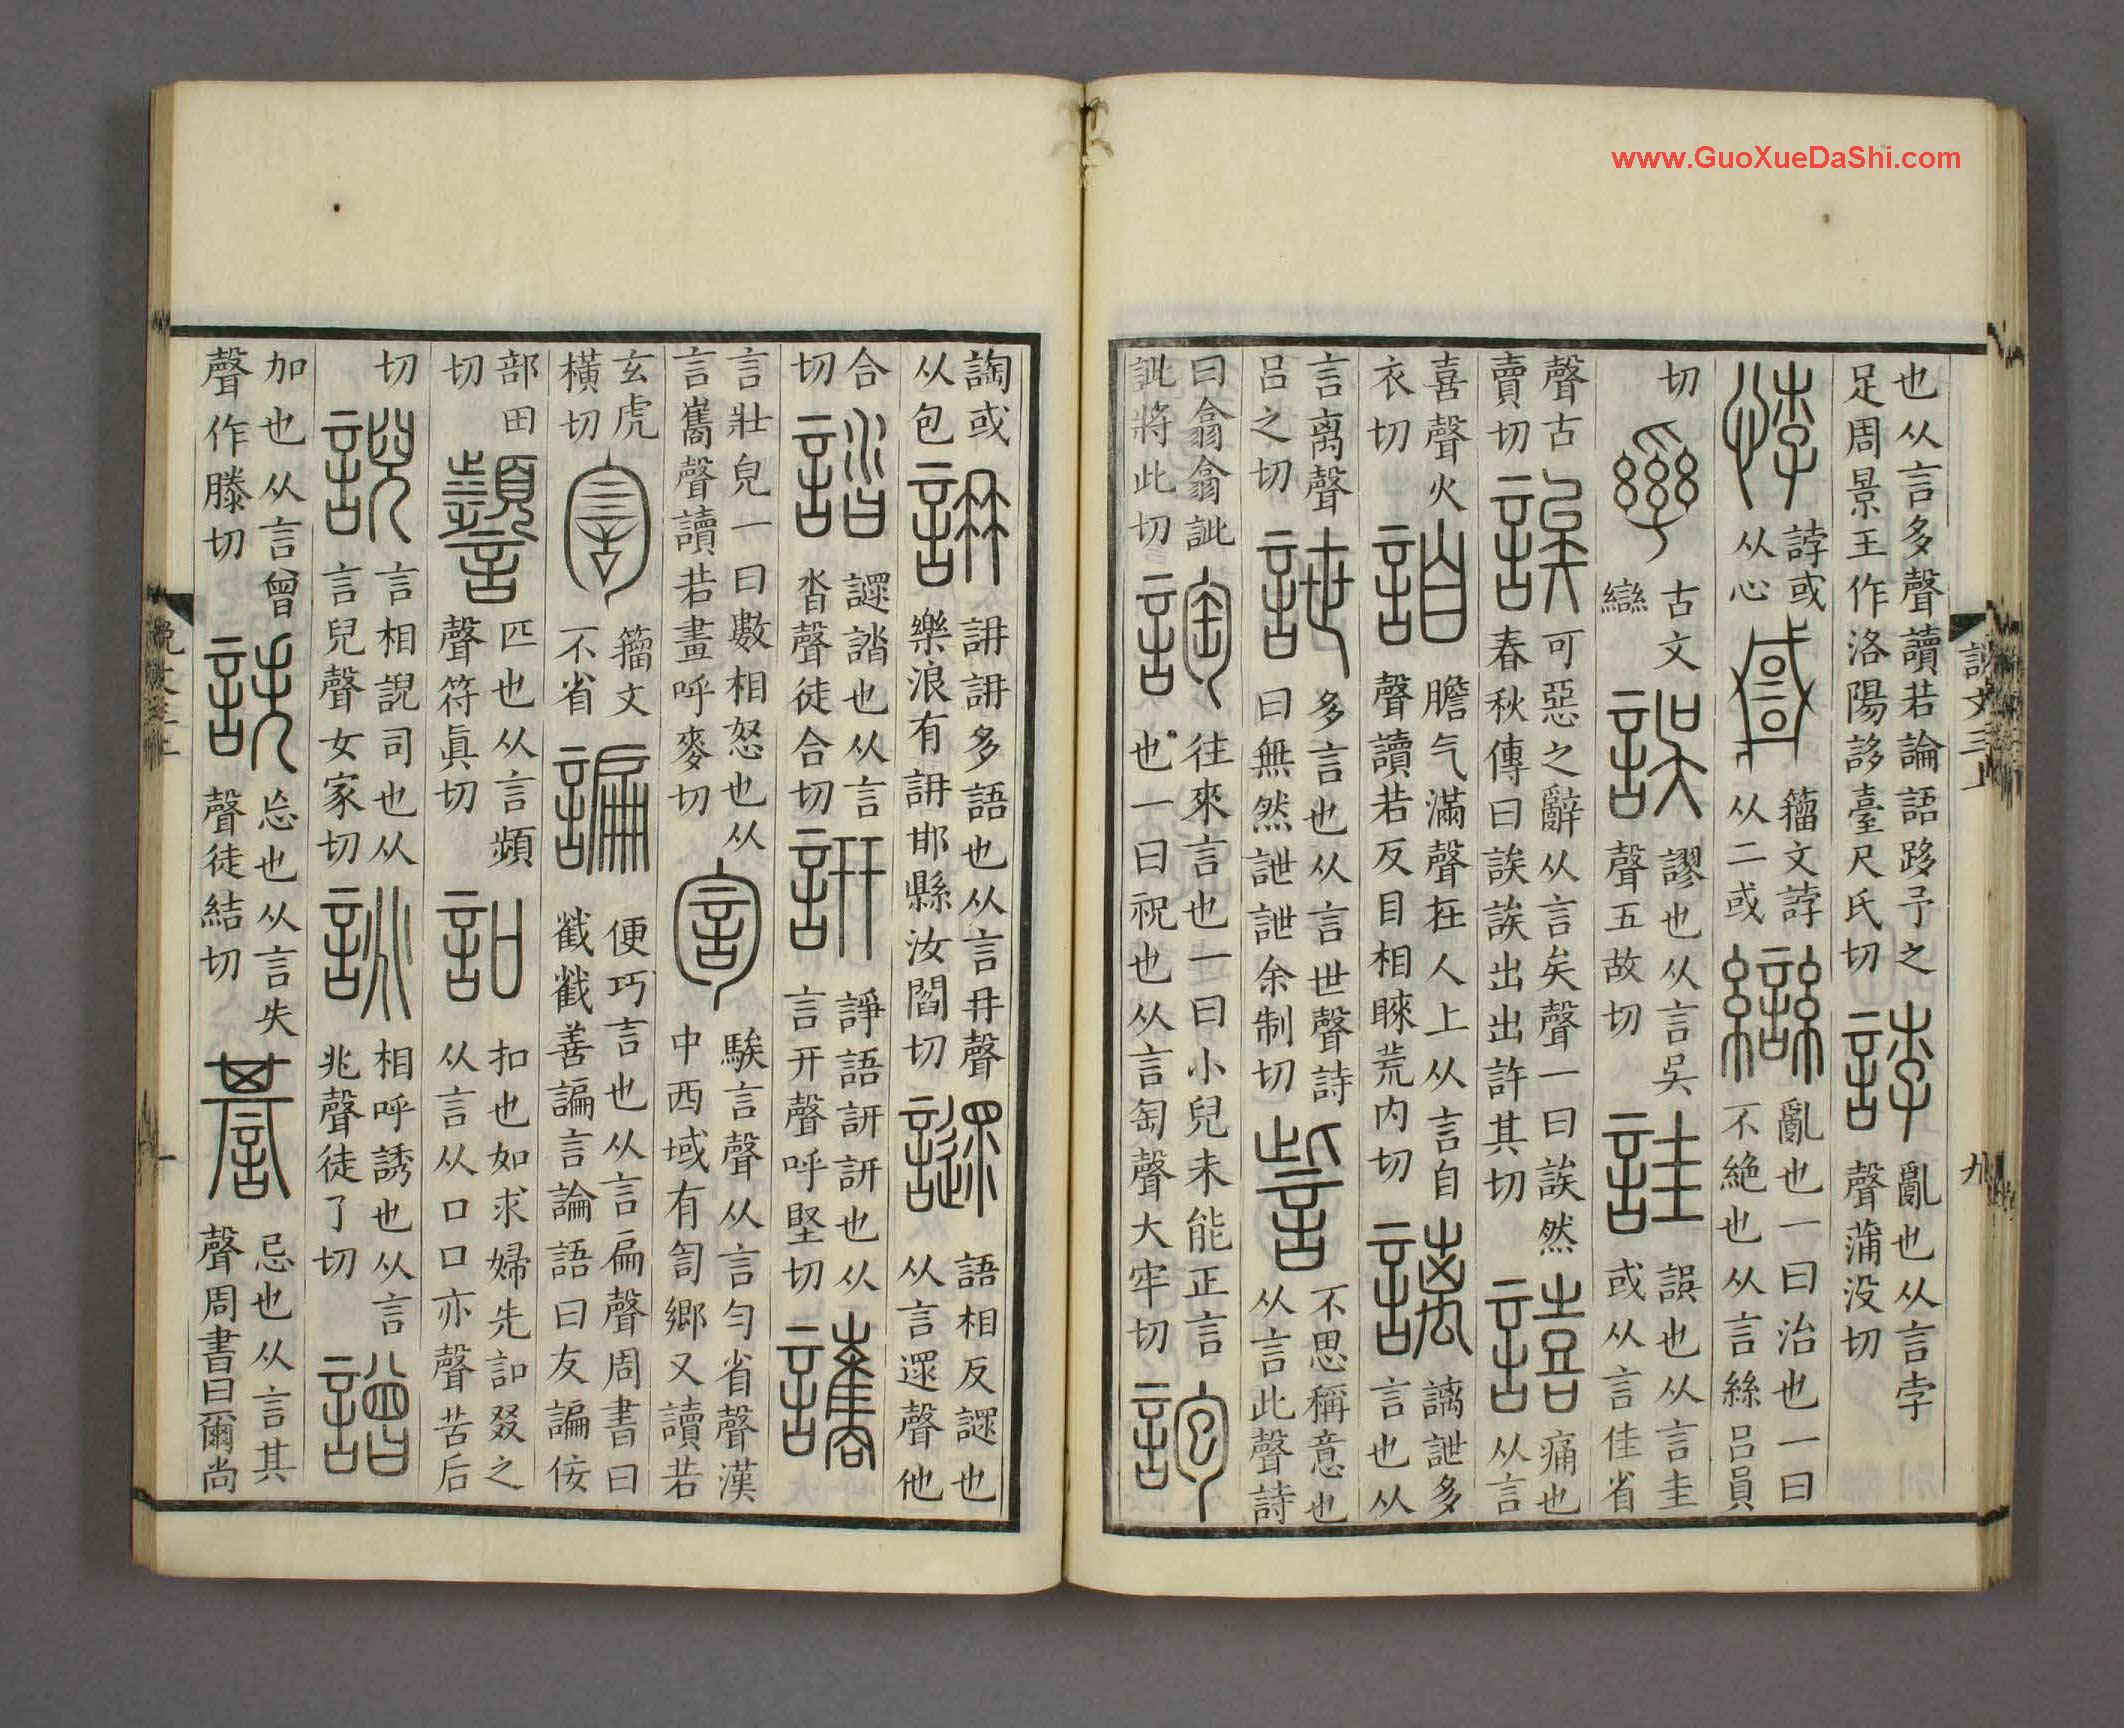 www.GuoXueDaShi.com
說文三上 九
也从言多聲讀若論語跢予之足周景王作洛陽誃臺尺氏切 誖 亂也从言孛聲蒲没切
悖 誖或从心 籀文誖从二或 䜌 亂也一曰治也一曰不絶也从言絲吕員
切 古文䜌 誤 謬也从言吳聲五故切 詿 誤也从言圭或从言佳省
聲古賣切 誒 可惡之辭从言矣聲一曰誒然春秋傳曰誒誒出出許其切 譆 痛也从言
喜聲火衣切 詯 膽气滿聲在人上从言自聲讀若反目相睞荒内切 謧 謧詍多言也从
言离聲吕之切 詍 多言也从言世聲詩曰無然詍詍余制切 訾 不思稱意也从言此聲詩
曰翕翕訿訿將此切 詢 往來言也一曰小兒未能正言也一曰祝也从言匋聲大牢切 䛌
詾或从包 䛁 䛁䛁多語也从言冄聲樂浪有䛁邯縣汝閻切 䜚 語相反䜚也从言遝聲他
合切 誻 䜚誻也从言沓聲徒合切 詽 諍語詽詽也从言幵聲呼堅切 讗
言壯皃一曰數相怒也从言巂聲讀若畫呼麥切 訇 騃言聲从言勻省聲漢中西域有訇鄉又讀若
玄虎橫切 籀文不省 諞 便巧言也从言扁聲周書曰截截善諞言論語曰友諞佞
部田切 匹也从言頻聲符眞切 訆 扣也如求婦先訆叕之从言从口口亦聲苦后
切 誽 言相誽司也从言兒聲女家切 誂 相呼誘也从言兆聲徒了切 譄
加也从言曾聲作滕切 詄 忘也从言失聲徒結切 諅 忌也从言其聲周書曰爾尚